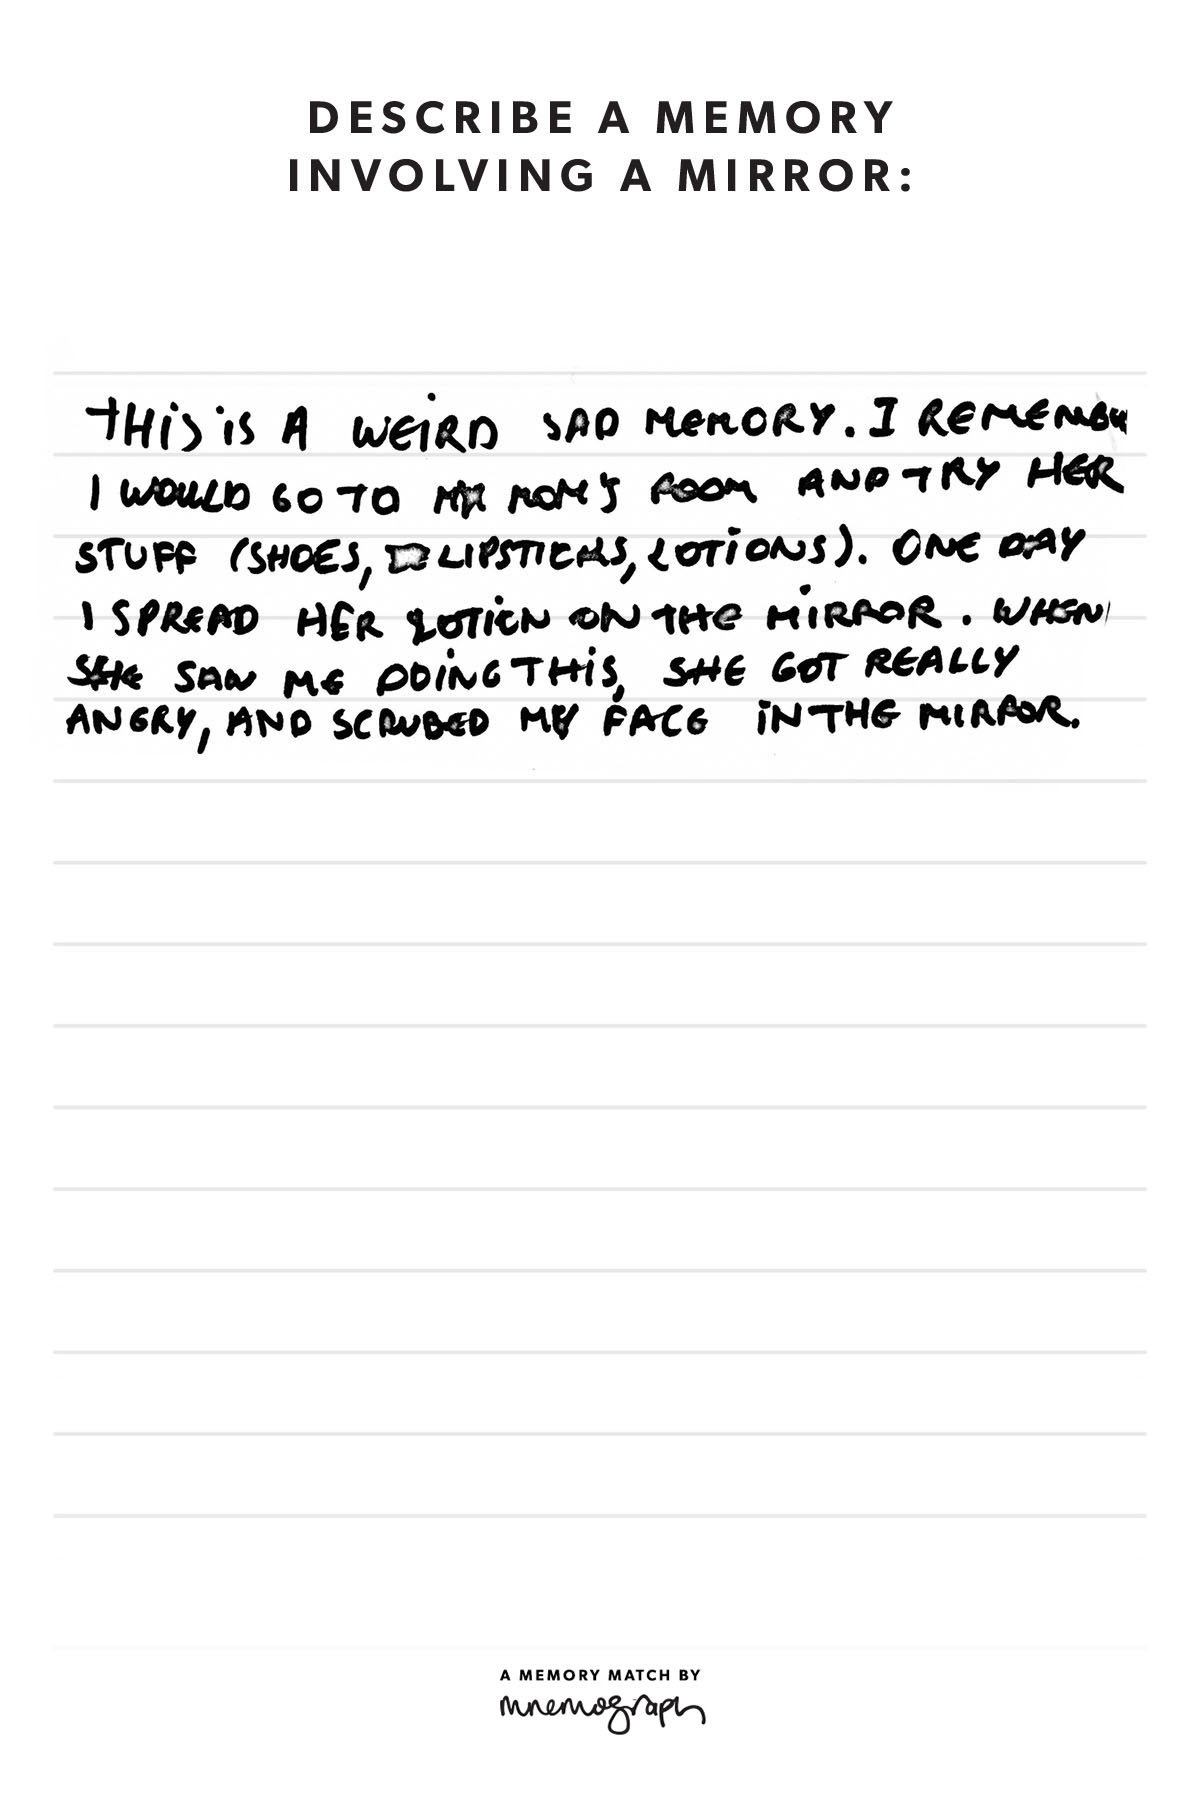 DESCRIBE A MEMORY
INVOLVING A MIRROR:
THIS IS A WEIRD SAD MEMORY. I REMEMBER
I WOULD GO TO MY MOM'S ROOM AND TRY HER
STUFF (SHOES, LIPSTICKS, LOTIONS). ONE DAY
I SPREAD HER LOTION ON THE MIRROR. WHEN
SHE SAW ME DOING THIS, SHE GOT REALLY
ANGRY, AND SCRUBED MY FACE IN THE MIRROR.
A MEMORY MATCH BY
mnemograph